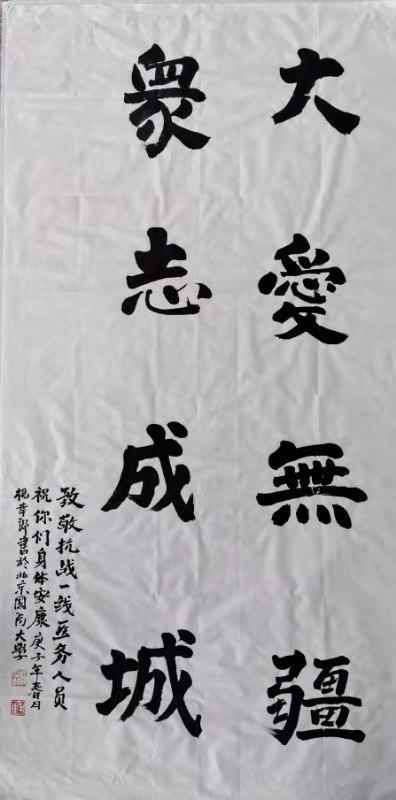 大愛無疆
眾志成城
致敬抗战一线医务人员
祝你们身体安康 庚子年春月
楊幸郎書於北京國府大學